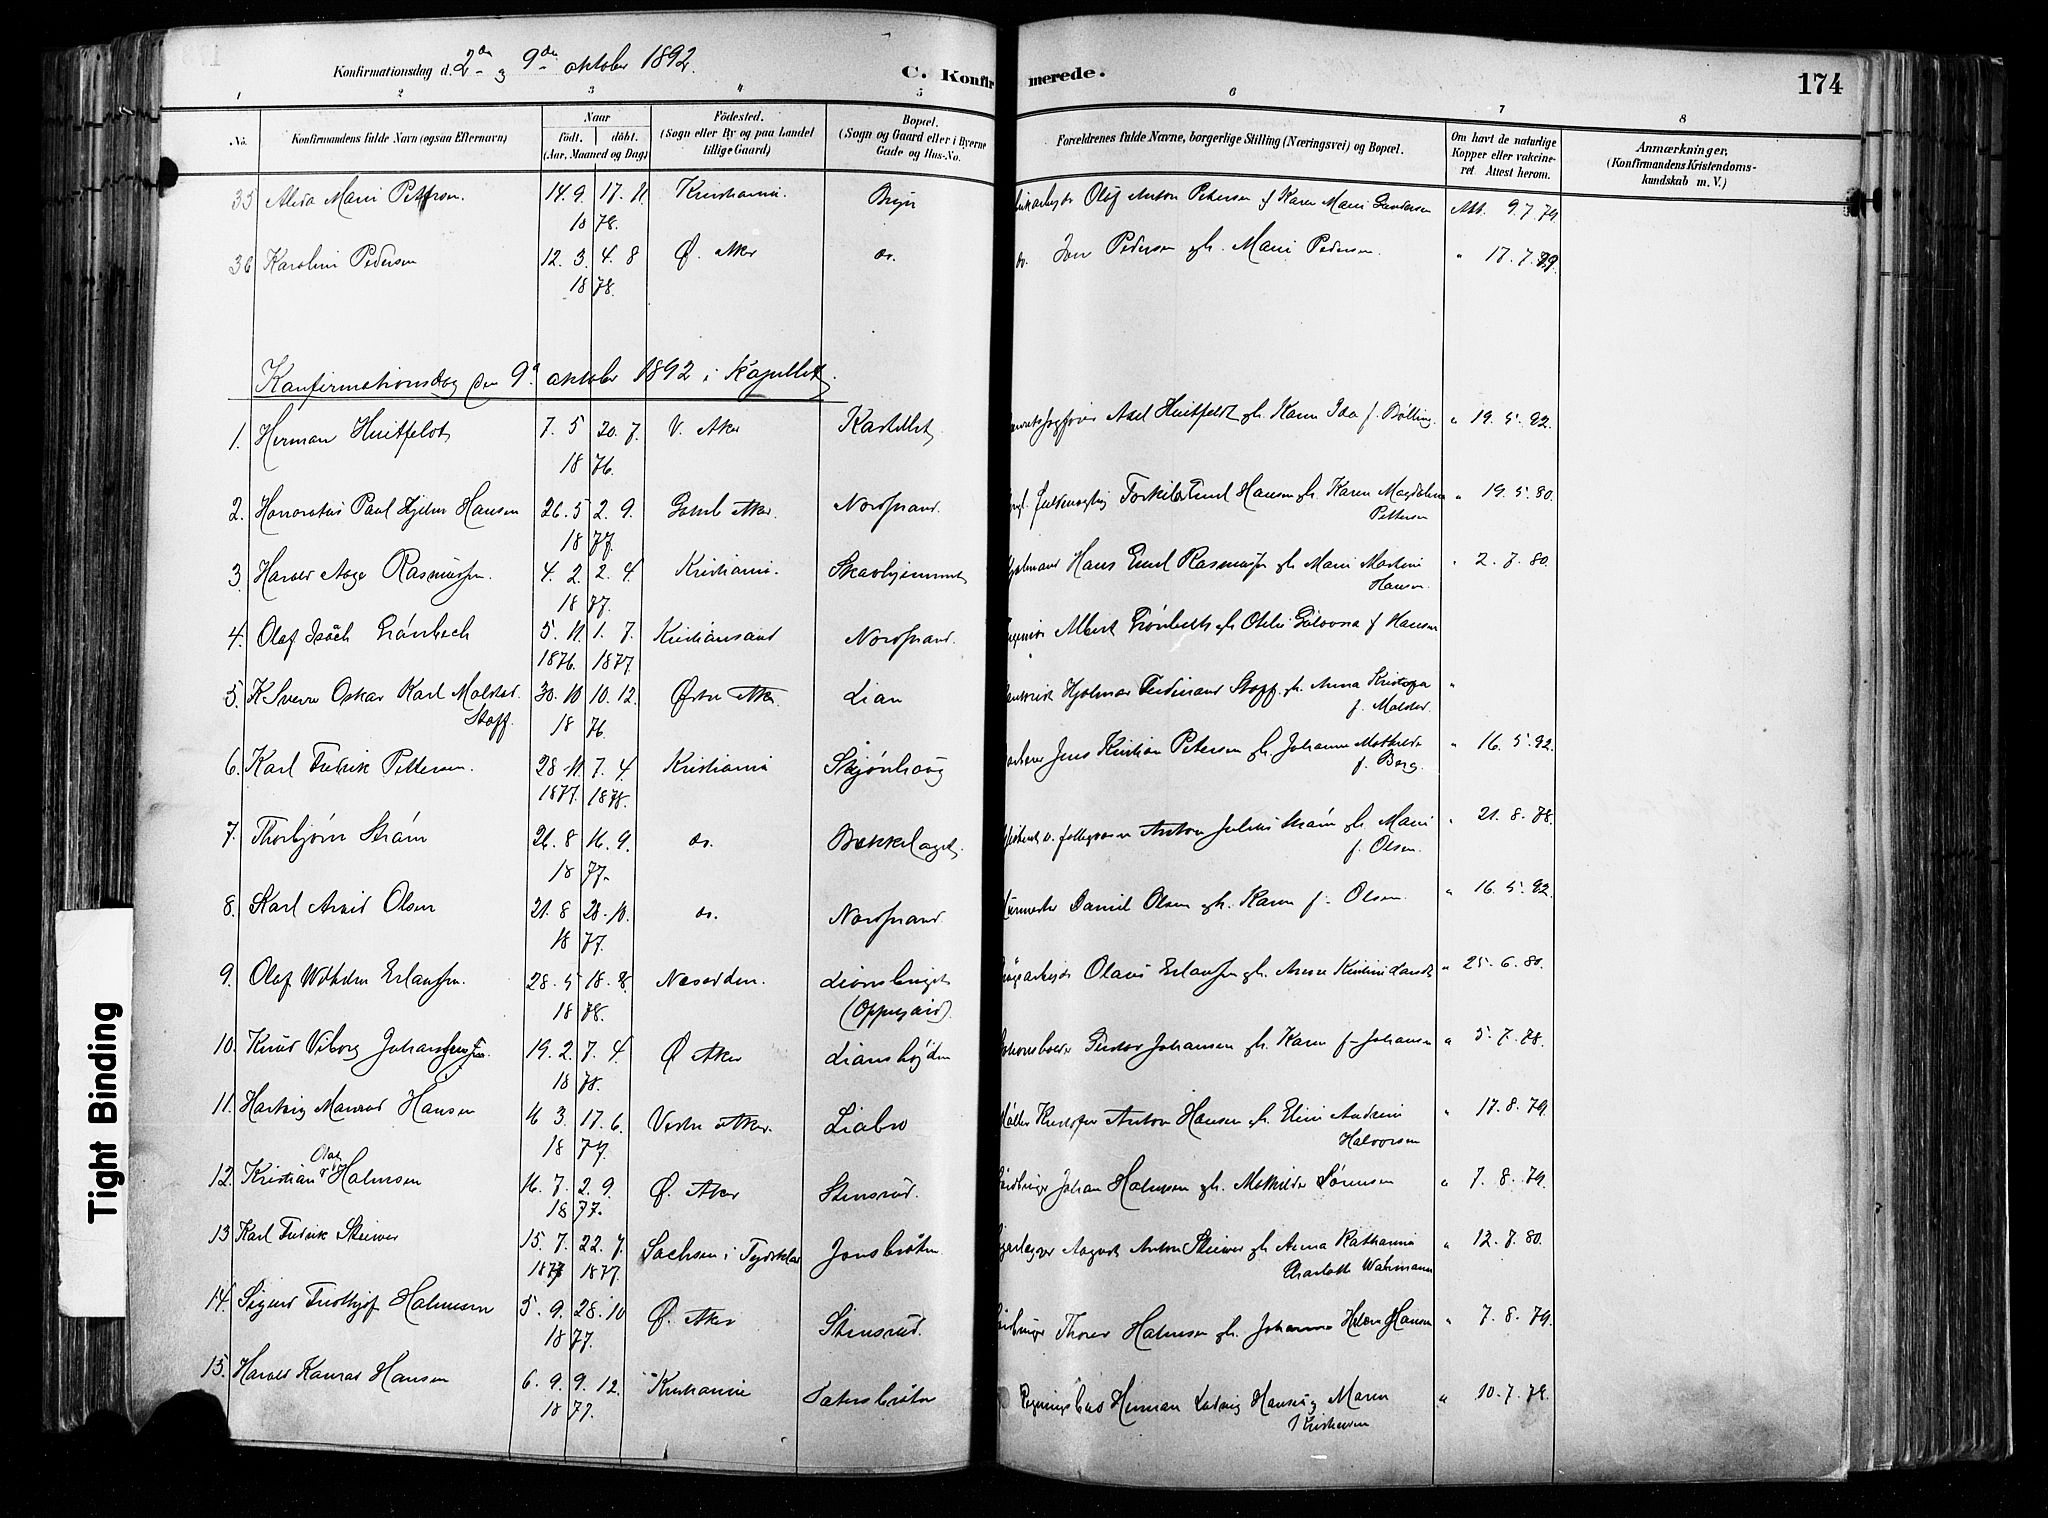 Konfirmationsdag d. 2den og 9de oktober 1892.
C. Konfirmerede.
174
1 2 3 4 5 6 7 8
No. Konfirmandens fulde Navn (ogsaa Efternavn) Naar født. døbt. (Aar, Maaned og Dag) Fødested. (Sogn eller By og paa Landet tillige Gaard) Bopæl. (Sogn og Gaard eller i Byerne Gade og Hus-No. Forældrenes fulde Navne, borgerlige Stilling (Næringsvei) og Bopæl. Om havt de naturlige Kopper eller vakcineret Attest herom. Anmærkninger, (Konfirmandens Kristendomskundskab m. V.)
35 Marie Petersen. 14. 9. 17. 11. Kristiania. Bryn Olaf Anton Petersen f Karen Marie Gundersen Att. 9.7.79
18 78.
36 Karoline Pedersen 12. 3. 4. 8 Ø. Aker do. do. Pedersen gh. Marie Pedersen. " 17.7.79.
18 78.
Konfirmationsdag den 9de oktober 1892 i Kapellet.
1. Herman Huitfeldt 7. 5 20. 7. V. Aker Kastellet Axel Huitfeldt gh. Karen Ida f. Bølling. " 19.5.92.
18 76.
2. Honoratus Paul Hjelm Hansen 26. 5 2. 9. Gamle Aker Nordstrand. Torkild Emil Hansen gh. Karen Magdalena Pettersen " 19.5.80.
18 77.
3. Harald Aage Rasmussen. 4. 2. 2. 4. Kristiania. Hans Emil Rasmussen gh. Marie Martine Hansen " 2.7.80.
18 77.
4. Olaf Grønbech 5. 11. 1. 7. Kristiansand Nordstrand. Albert Grønbech gh. f Hansen
1876. 1877
5. Sverre Oskar Karl Molstad Stoff. 30. 10 10. 12. Østre Aker. Lian Hjalmar Ferdinand Stoff gh. Anna f. Molstad. "
18 76.
6. Karl Fredrik Pettersen. 28. 11 7. 4 Kristiania Skjønhaug Jens Kristian Petersen gh. Johanne Mathilde f. Berg. " 16.5.92.
1877. 1878.
7. Thorbjørn Strøm 26. 8 16. 9. do. Bekkelaget. Anton Julius Strøm gh. Marie f. Olsen. " 21.8.78.
18 77.
8. Karl Arvid Olsen 21. 8 28. 10. do. Nordstrand. Daniel Olsen gh. Karen f. Olsen. " 16.5.92.
18 77.
9. Olaf Wilhelm Erlandsen. 28. 5 18. 8. Nesodden. (Oppegård). Olaus Erlandsen gh. Anne Kristine " 25.6.80.
18 78.
10. Knud Viborg Johansen 19. 2. 7. 4 Ø Aker Lianshøiden Gustav Johansen gh. Karen f. Johansen " 5.7.78.
18 78.
11. Hartvig Hansen 16 3. 17. 6. Vestre Aker. Liabro Kristofer Anton Hansen gh. Eline Andrine Halvorsen " 17.8.79.
18 77.
12. Kristian Olaf Halmsen 16. 7. 2. 9. Ø. Aker Stensrud. Johan Halmsen gh. Mathilde Sørensen " 7.8.79.
18 77.
13 Karl Fredrik Steiwer 15. 7. 22. 7. Sachsen i Tydskland Jonsbråten August Anton Steiwer gh. Anna Katharina Charlotte Wahrmann " 12.7.80.
1877 1877.
14. Sigurd Fridthjof Halmsen 5. 9. 28. 10 Ø. Aker Stensrud. Thorer Halmsen gh. Johanne Helene Hansen " 7.8.79.
18 77.
15. Harald Konrad Hansen 6. 9. 9. 12. Kristiania Herman Ludvig Hansen Maren Kristiansen " 10.7.78.
18 77.
Tight Binding